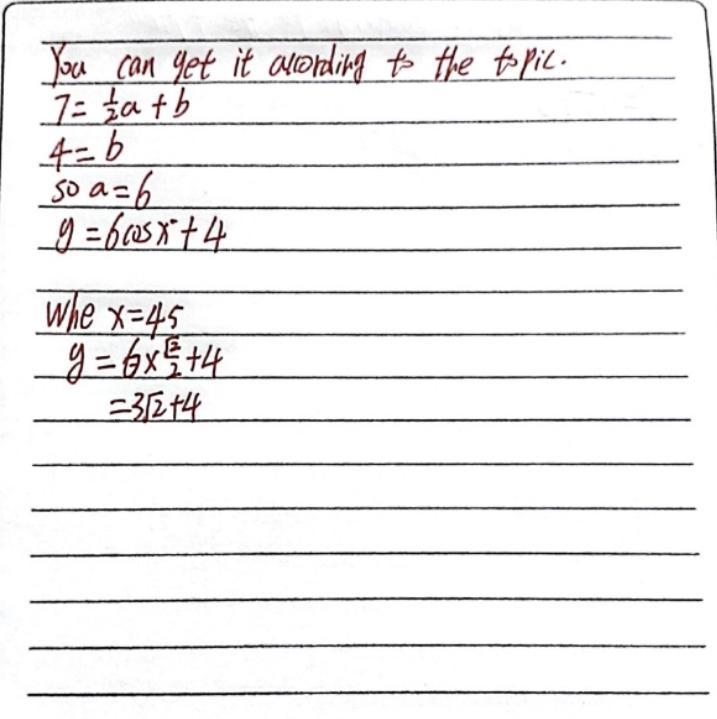 You can get it according to the topic.
7 = ½a + b
4 = b
so a = 6
y = 6cosx° + 4
Whe x = 45
y = 6 × √2/2 + 4
= 3√2 + 4